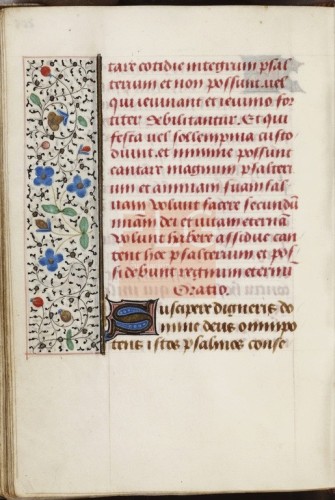 tare cotidie integrum psal
terium et non possunt. vel
qui ieiunant et ieiunio for
titer debilitantur. Et qui
festa vel sollempnia custo
diunt. et minime possunt
cantare magnum psalteri
um et animam suam sal
uam volunt facere secundū
miam dei et vitam eternā
volunt habere assidue can
tent hoc psalterium et pos
sidebunt regnum eternū
Oratio.
Suscipere digneris do
mine deus omnipo
tens istos psalmos conse